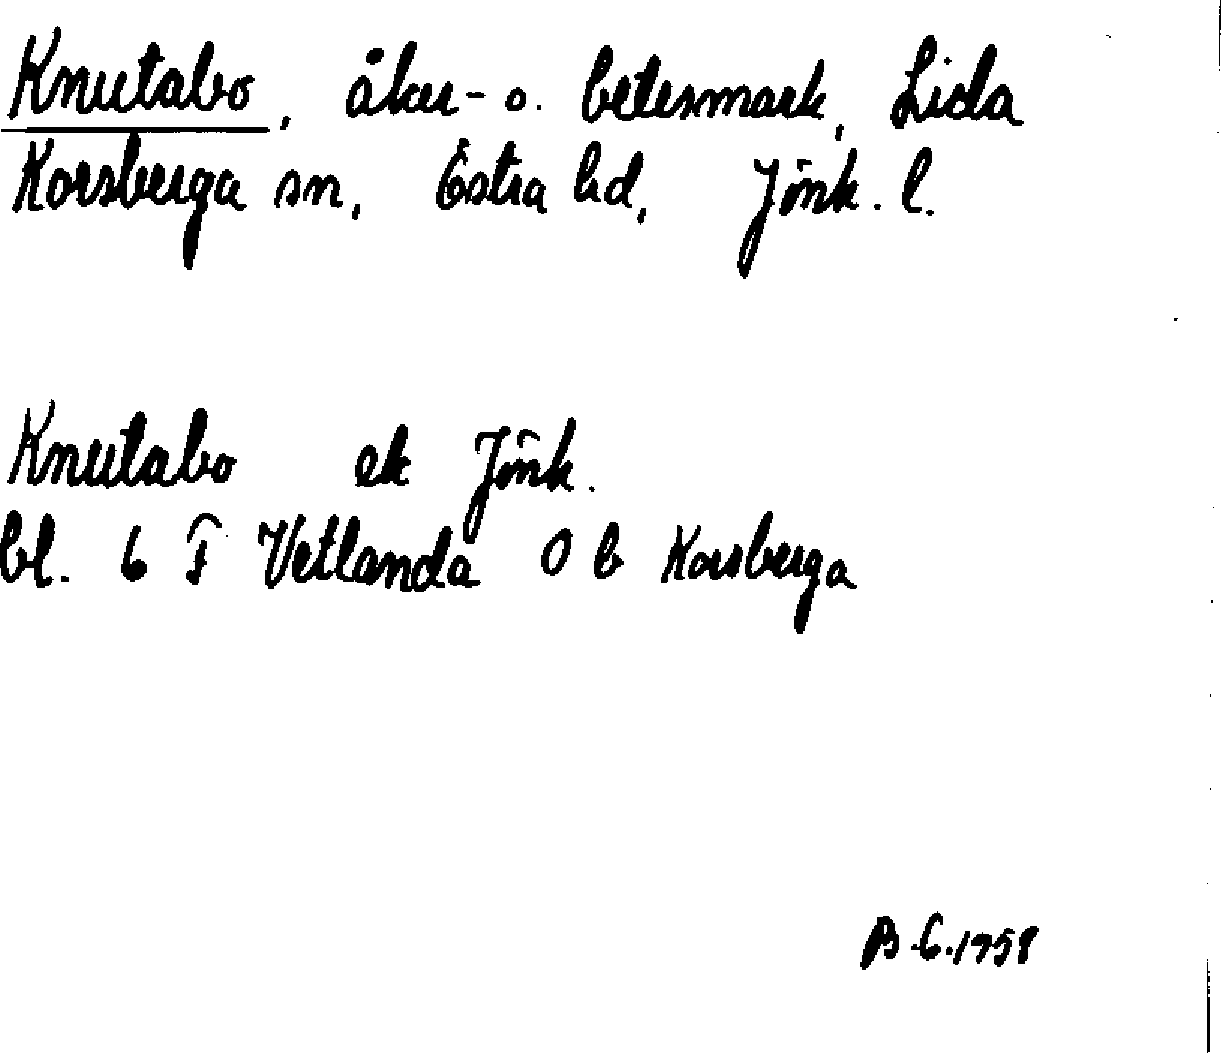 Knutabo, åker- o. betesmark, Lida
Korsberga sn, Östra hd, Jönk. l.
Knutabo ek Jönk.
bl. 6 F Vetlanda O b Korsberga
B.G. 1958